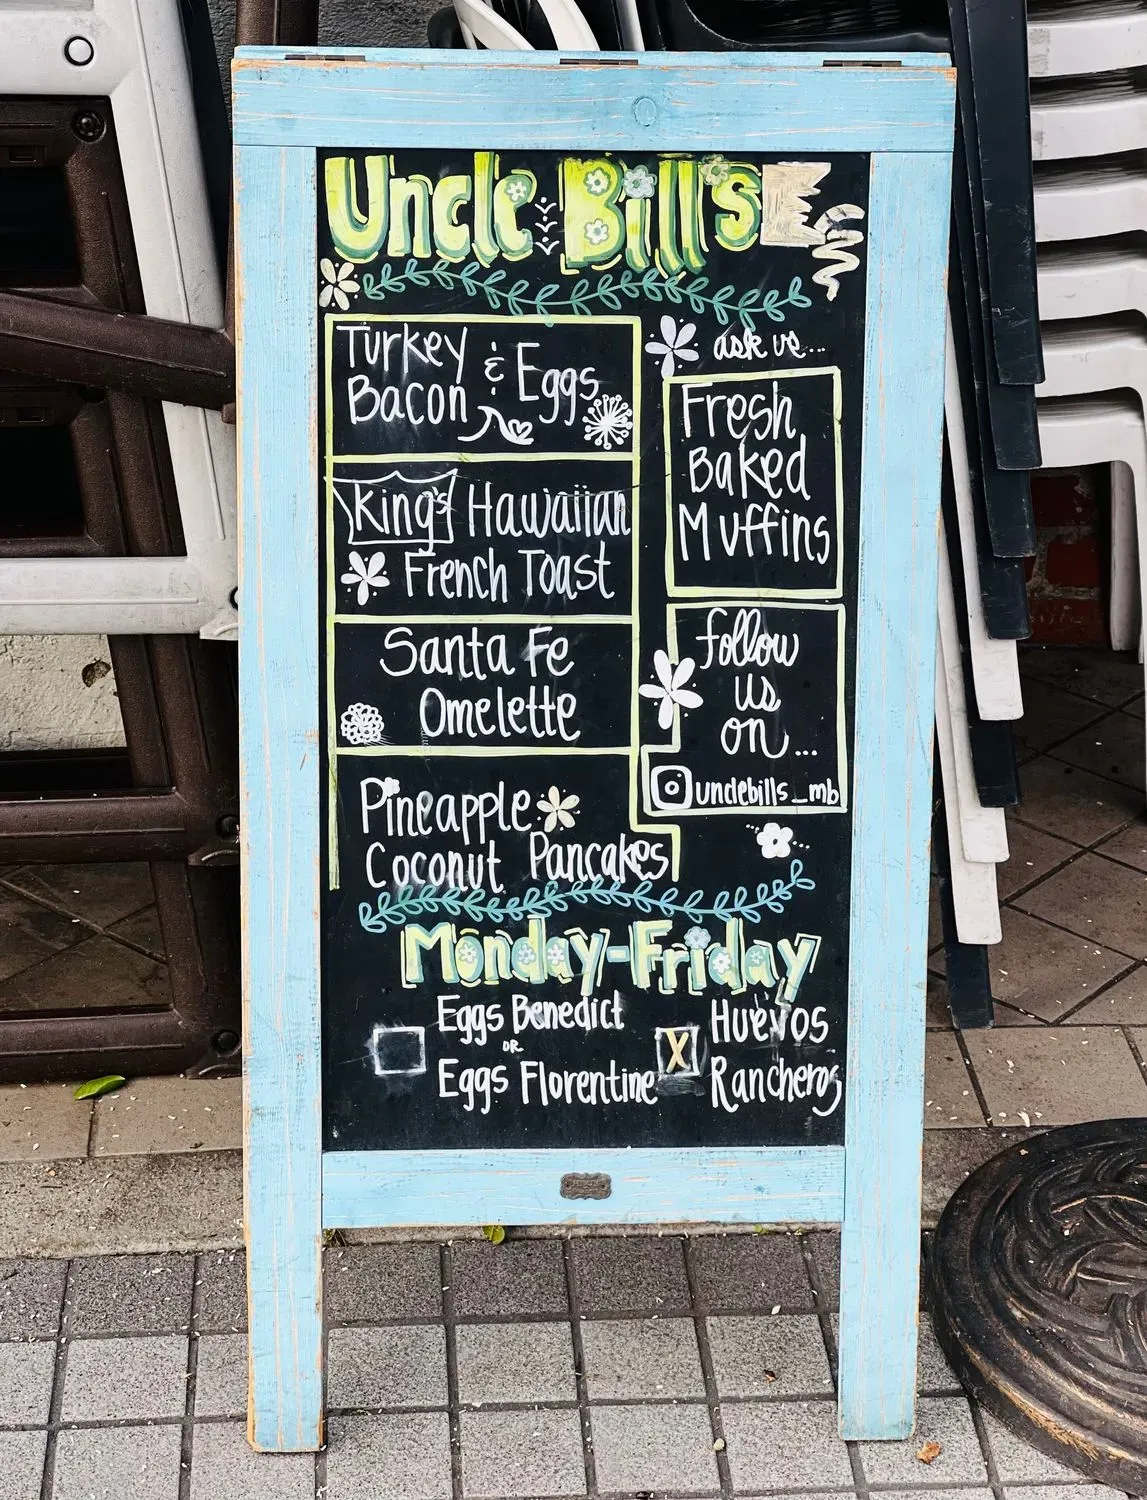 Uncle Bill's
Turkey
Bacon & Eggs
King's Hawaiian
French Toast
Santa Fe
Omelette
Pineapple
Coconut Pancakes
ask re...
Fresh
Baked
Muffins
follow
us
on...
unclebills_mb
Monday-Friday
Eggs Benedict
OR
Eggs Florentine
X
Huevos
Rancheros